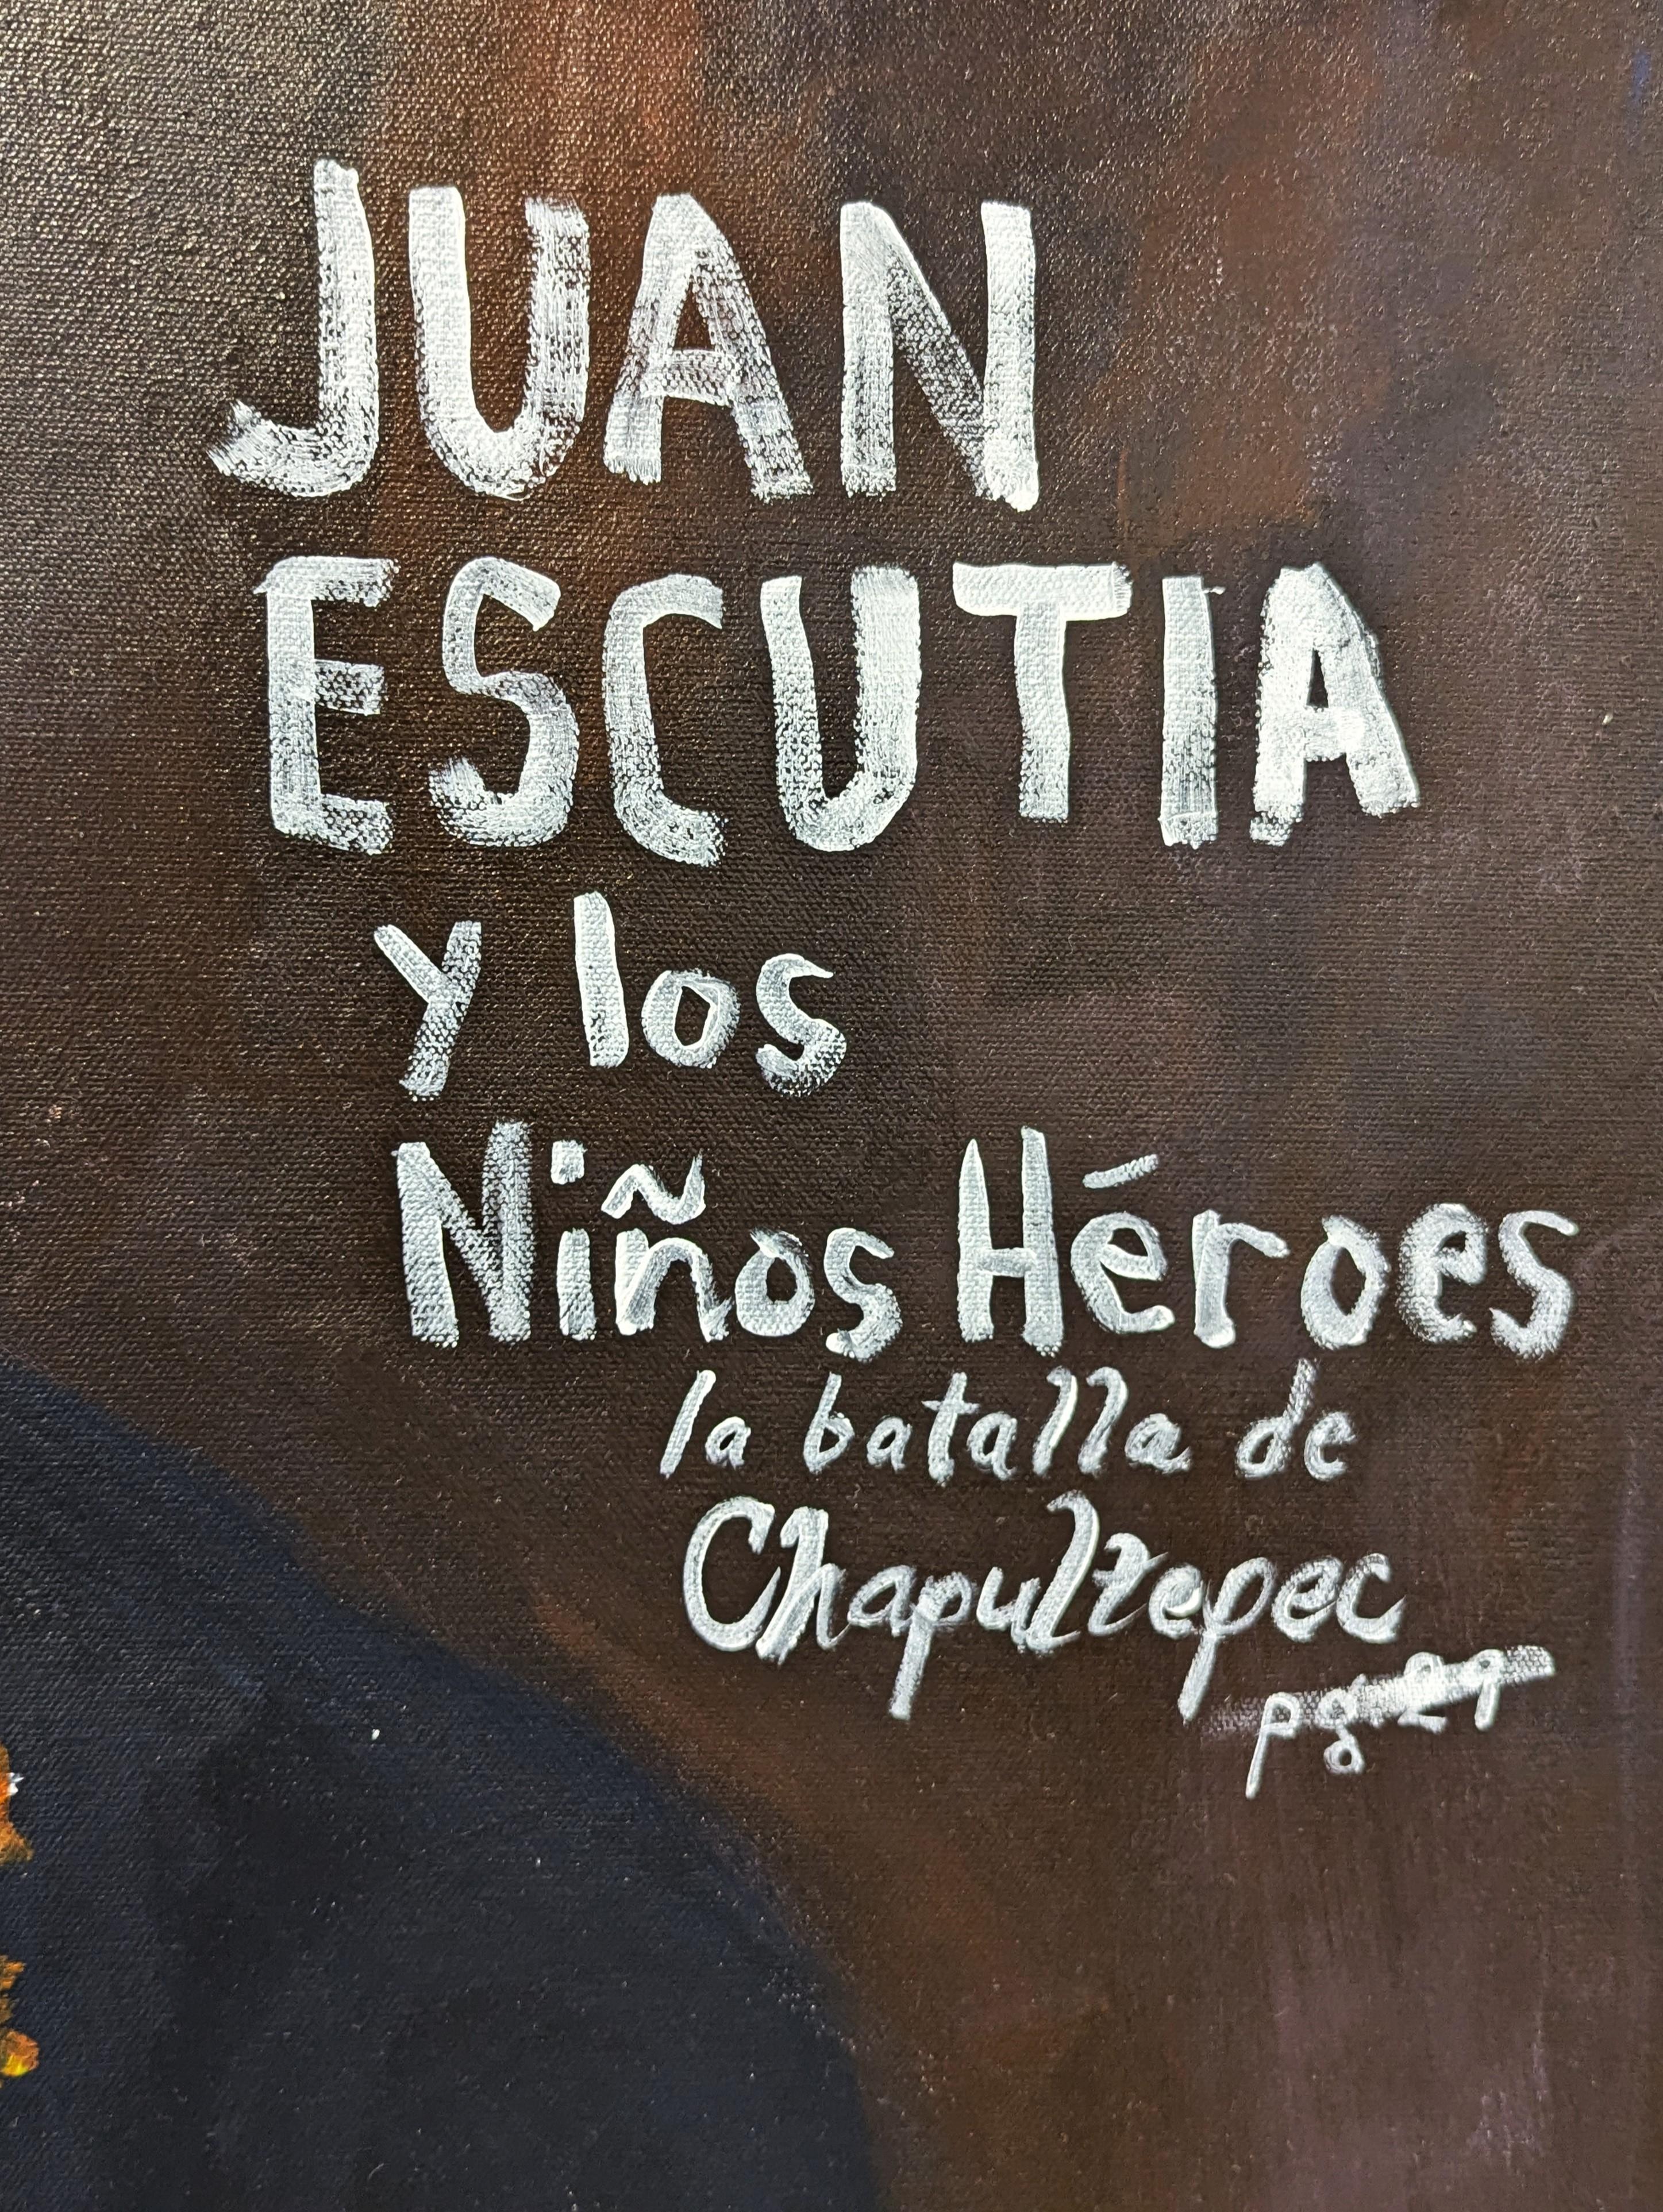 JUAN
ESCUTIA
y los
Niños Héroes
la batalla de
Chapultepec
pg. 29